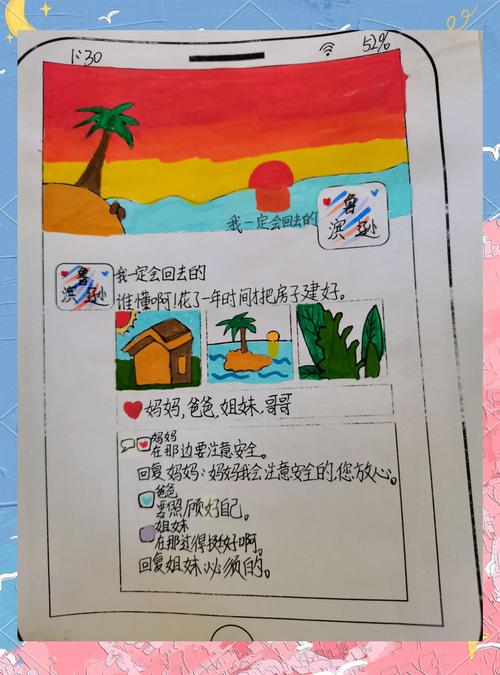 1:30
52%
我一定会回去的
鲁
滨逊
鲁
滨逊
我一定会回去的
谁懂啊!花了一年时间才把房子建好。
妈妈,爸爸,姐妹,哥哥
妈妈
在那边要注意安全。
回复妈妈:妈妈我会注意安全的,您放心。
爸爸
要照顾好自己。
姐妹
在那过得挺好啊。
回复姐妹:必须的。